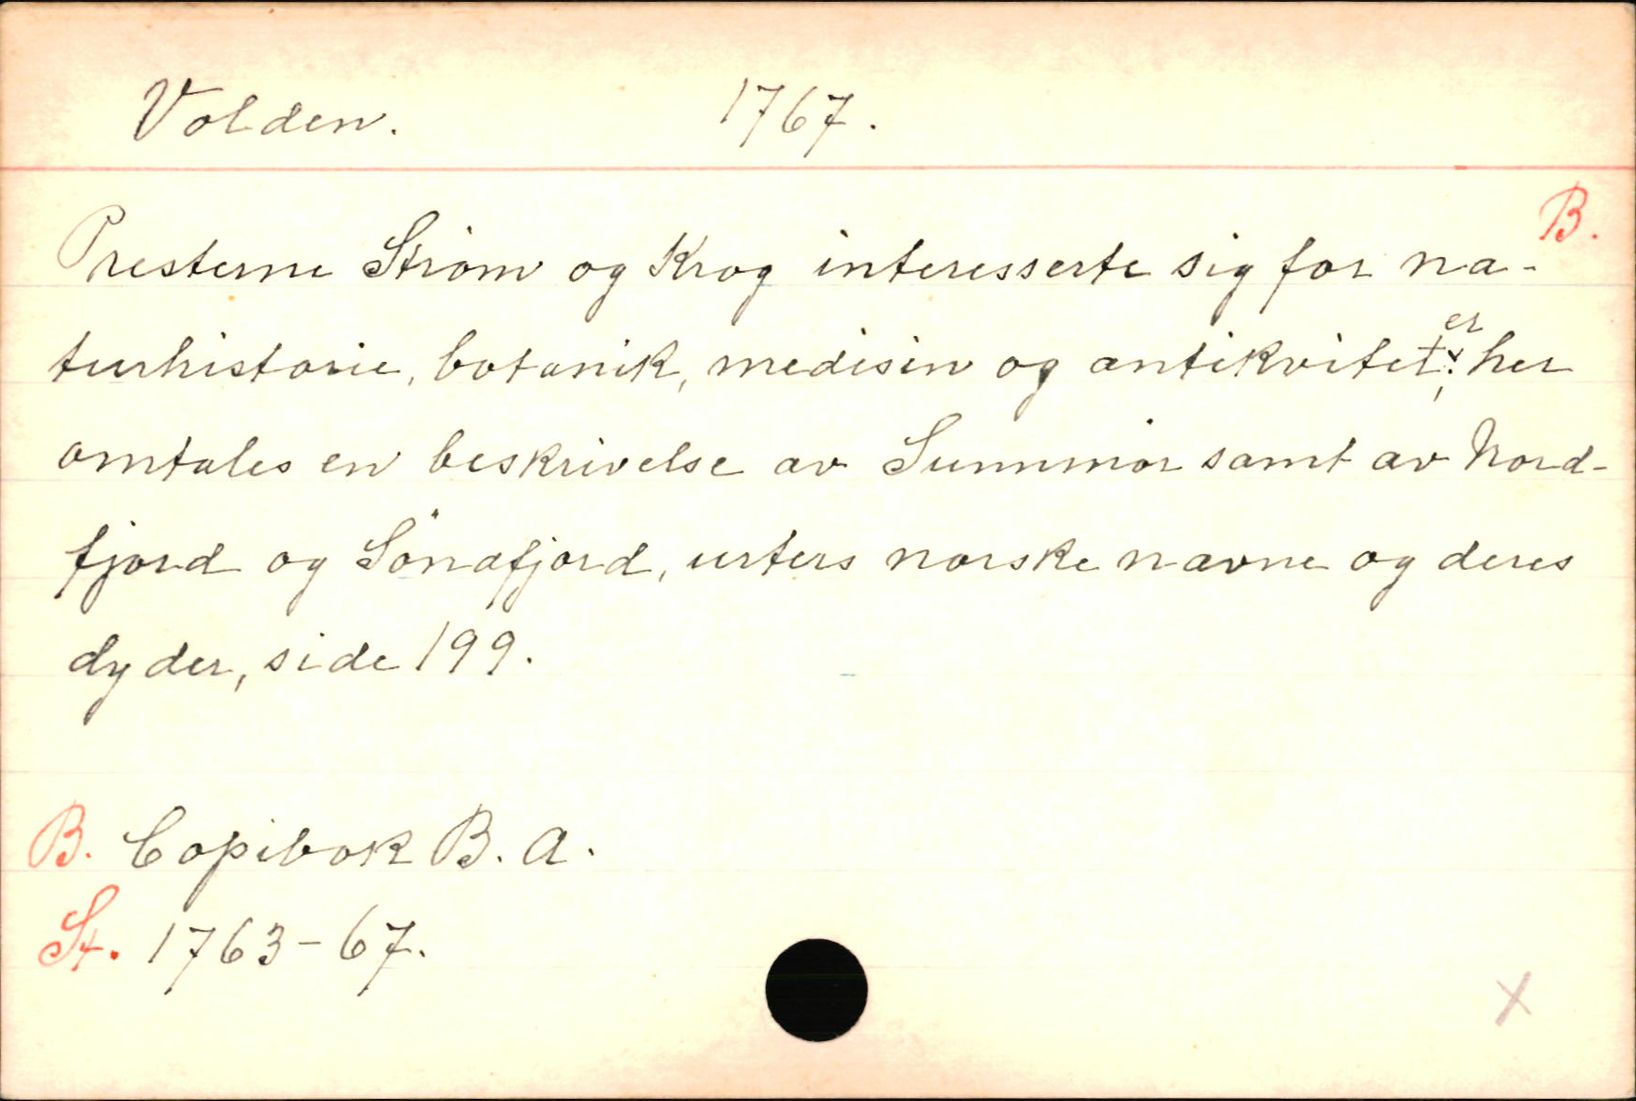 Volden. 1767.
B.
Presterne Ström og Krog interesserte sig for na-
turhistorie, botanik, medisin og antikviteter; her
omtales en beskrivelse av Sunnmör samt av Nord-
fjord og Söndfjord, urters norske navne og deres
dyder, side 199.
B. Copibok B. A.
St. 1763-67.
X